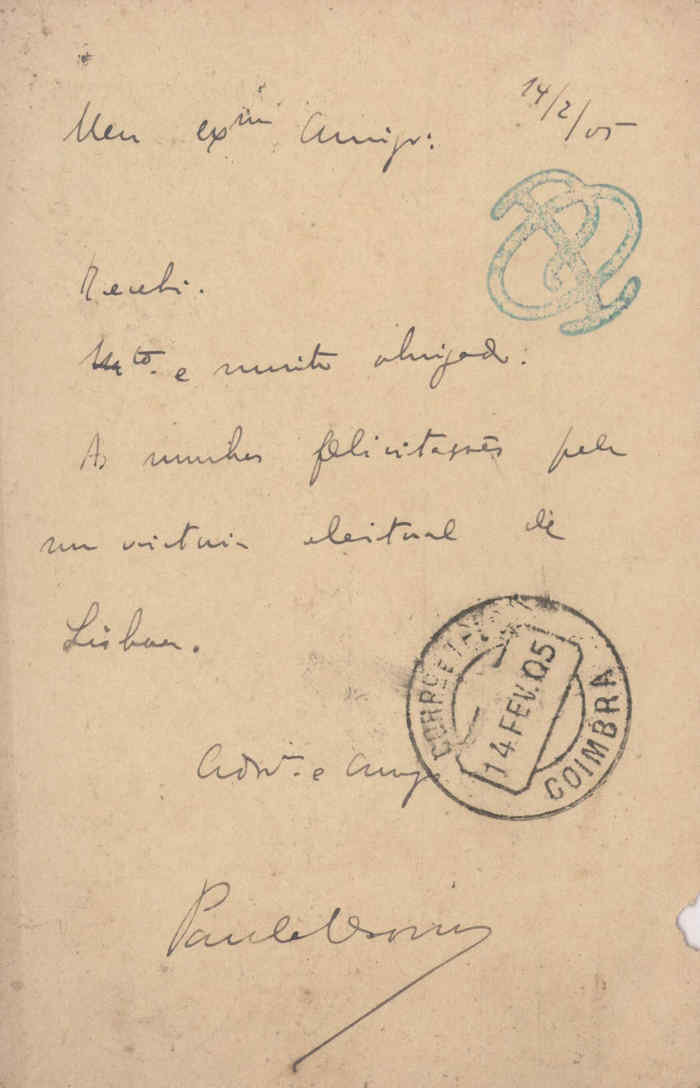 14/2/05
Meu exmo Amigo:
Recebi.
Mto. e muito obrigado.
As minhas felicitações pela
sua victoria eleitoral de
Lisboa.
Admr. e Amigo
CORREIO E TELEG.
14.FEV.05
COIMBRA